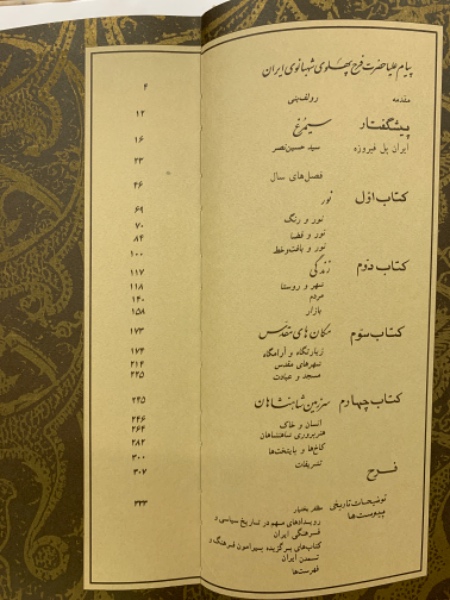 پیام علیا حضرت فرح پهلوی شهبانوی ایران ۴
مقدمه رولف بنی ۱۲
پیشگفتار سیمرغ ۱۶
ایران پل فیروزه سید حسین نصر ۲۳
فصل‌های سال ۲۶
کتاب اوّل نور ۶۹
نور و رنگ ۷۰
نور و فضا ۸۴
نور و بافت و خط ۱۰۰
کتاب دوّم زندگی ۱۱۷
شهر و روستا ۱۱۸
مردم ۱۴۰
بازار ۱۵۸
کتاب سوّم مکان های مقدّس ۱۷۳
زیارتگاه و آرامگاه ۱۷۴
شهرهای مقدس ۲۱۴
مسجد و عبادت ۲۲۵
کتاب چهارم سرزمین شاهنشاهان ۲۴۵
انسان و خاک ۲۴۶
هنرپروری شاهنشاهان ۲۶۴
کاخ‌ها و پایتخت‌ها ۲۸۲
تشریفات ۳۰۰
فرح ۳۰۷
توضیحات تاریخی مظفر بختیار ۳۳۳
پیوست ها رویدادهای مهم در تاریخ سیاسی و
فرهنگی ایران
کتاب‌های برگزیده پیرامون فرهنگ و
تمدن ایران
فهرست‌ها